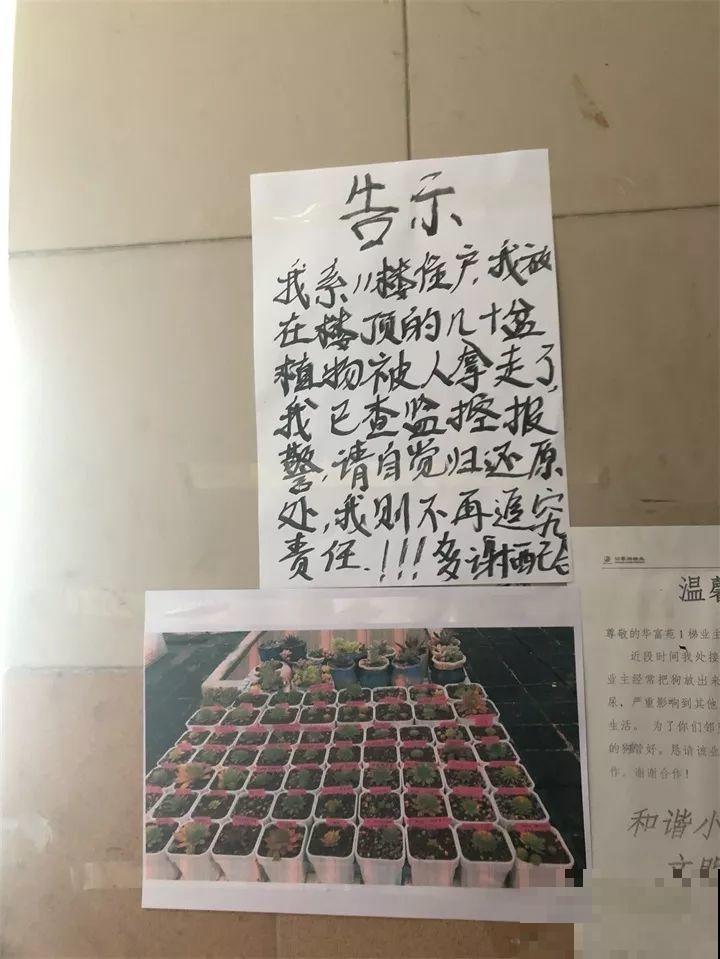 告示
我系11楼住户,我放
在楼顶的几十盆
植物被人拿走了,
我已查监控报
警,请自觉归还原
处,我则不再追究
责任.!!!多谢配合
温馨
尊敬的华富苑1梯业主
近段时间我处接
业主经常把狗放出来
尿，严重影响到其他
生活。为了你们邻
的狗管好。恳请该业
作。谢谢合作！
和谐小
文明